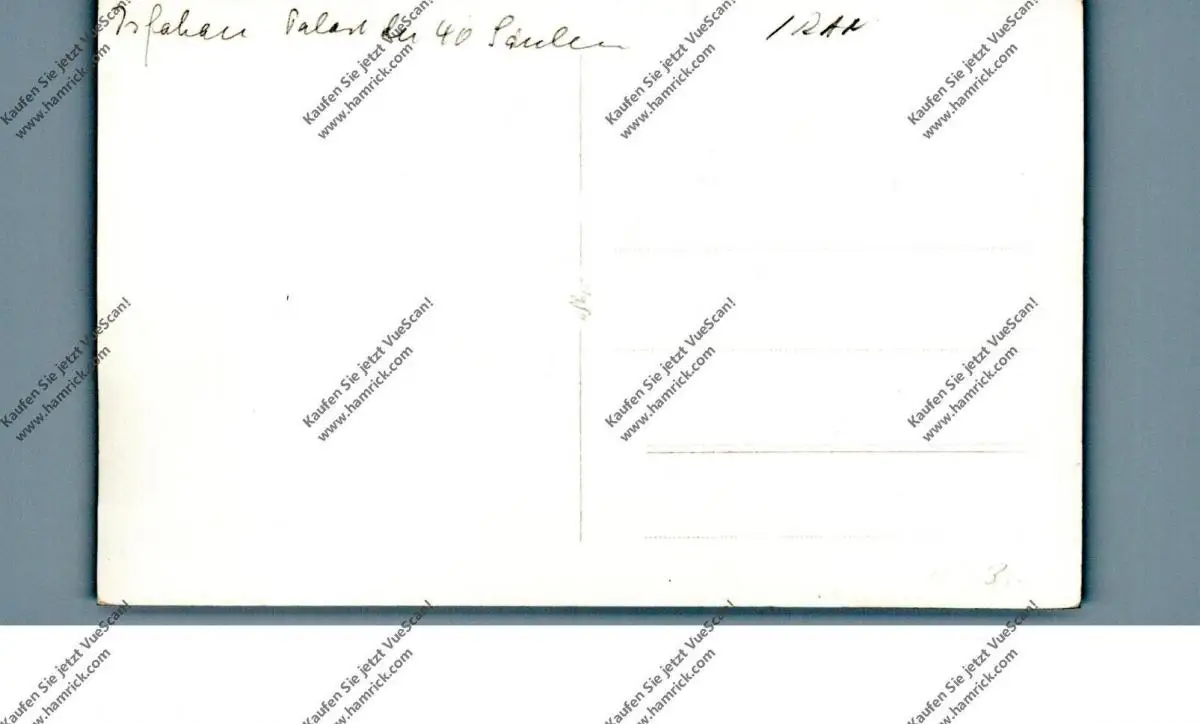 Isfahan Palast der 40 Säulen IRAN
Kaufen Sie jetzt VueScan!
www.hamrick.com
Kaufen Sie jetzt VueScan!
www.hamrick.com
Kaufen Sie jetzt VueScan!
www.hamrick.com
Kaufen Sie jetzt VueScan!
www.hamrick.com
Kaufen Sie jetzt VueScan!
www.hamrick.com
Kaufen Sie jetzt VueScan!
www.hamrick.com
Kaufen Sie jetzt VueScan!
www.hamrick.com
Kaufen Sie jetzt VueScan!
www.hamrick.com
3
Kaufen Sie jetzt VueScan!
www.hamrick.com
Kaufen Sie jetzt VueScan!
www.hamrick.com
Kaufen Sie jetzt VueScan!
www.hamrick.com
Kaufen Sie jetzt VueScan!
www.hamrick.com